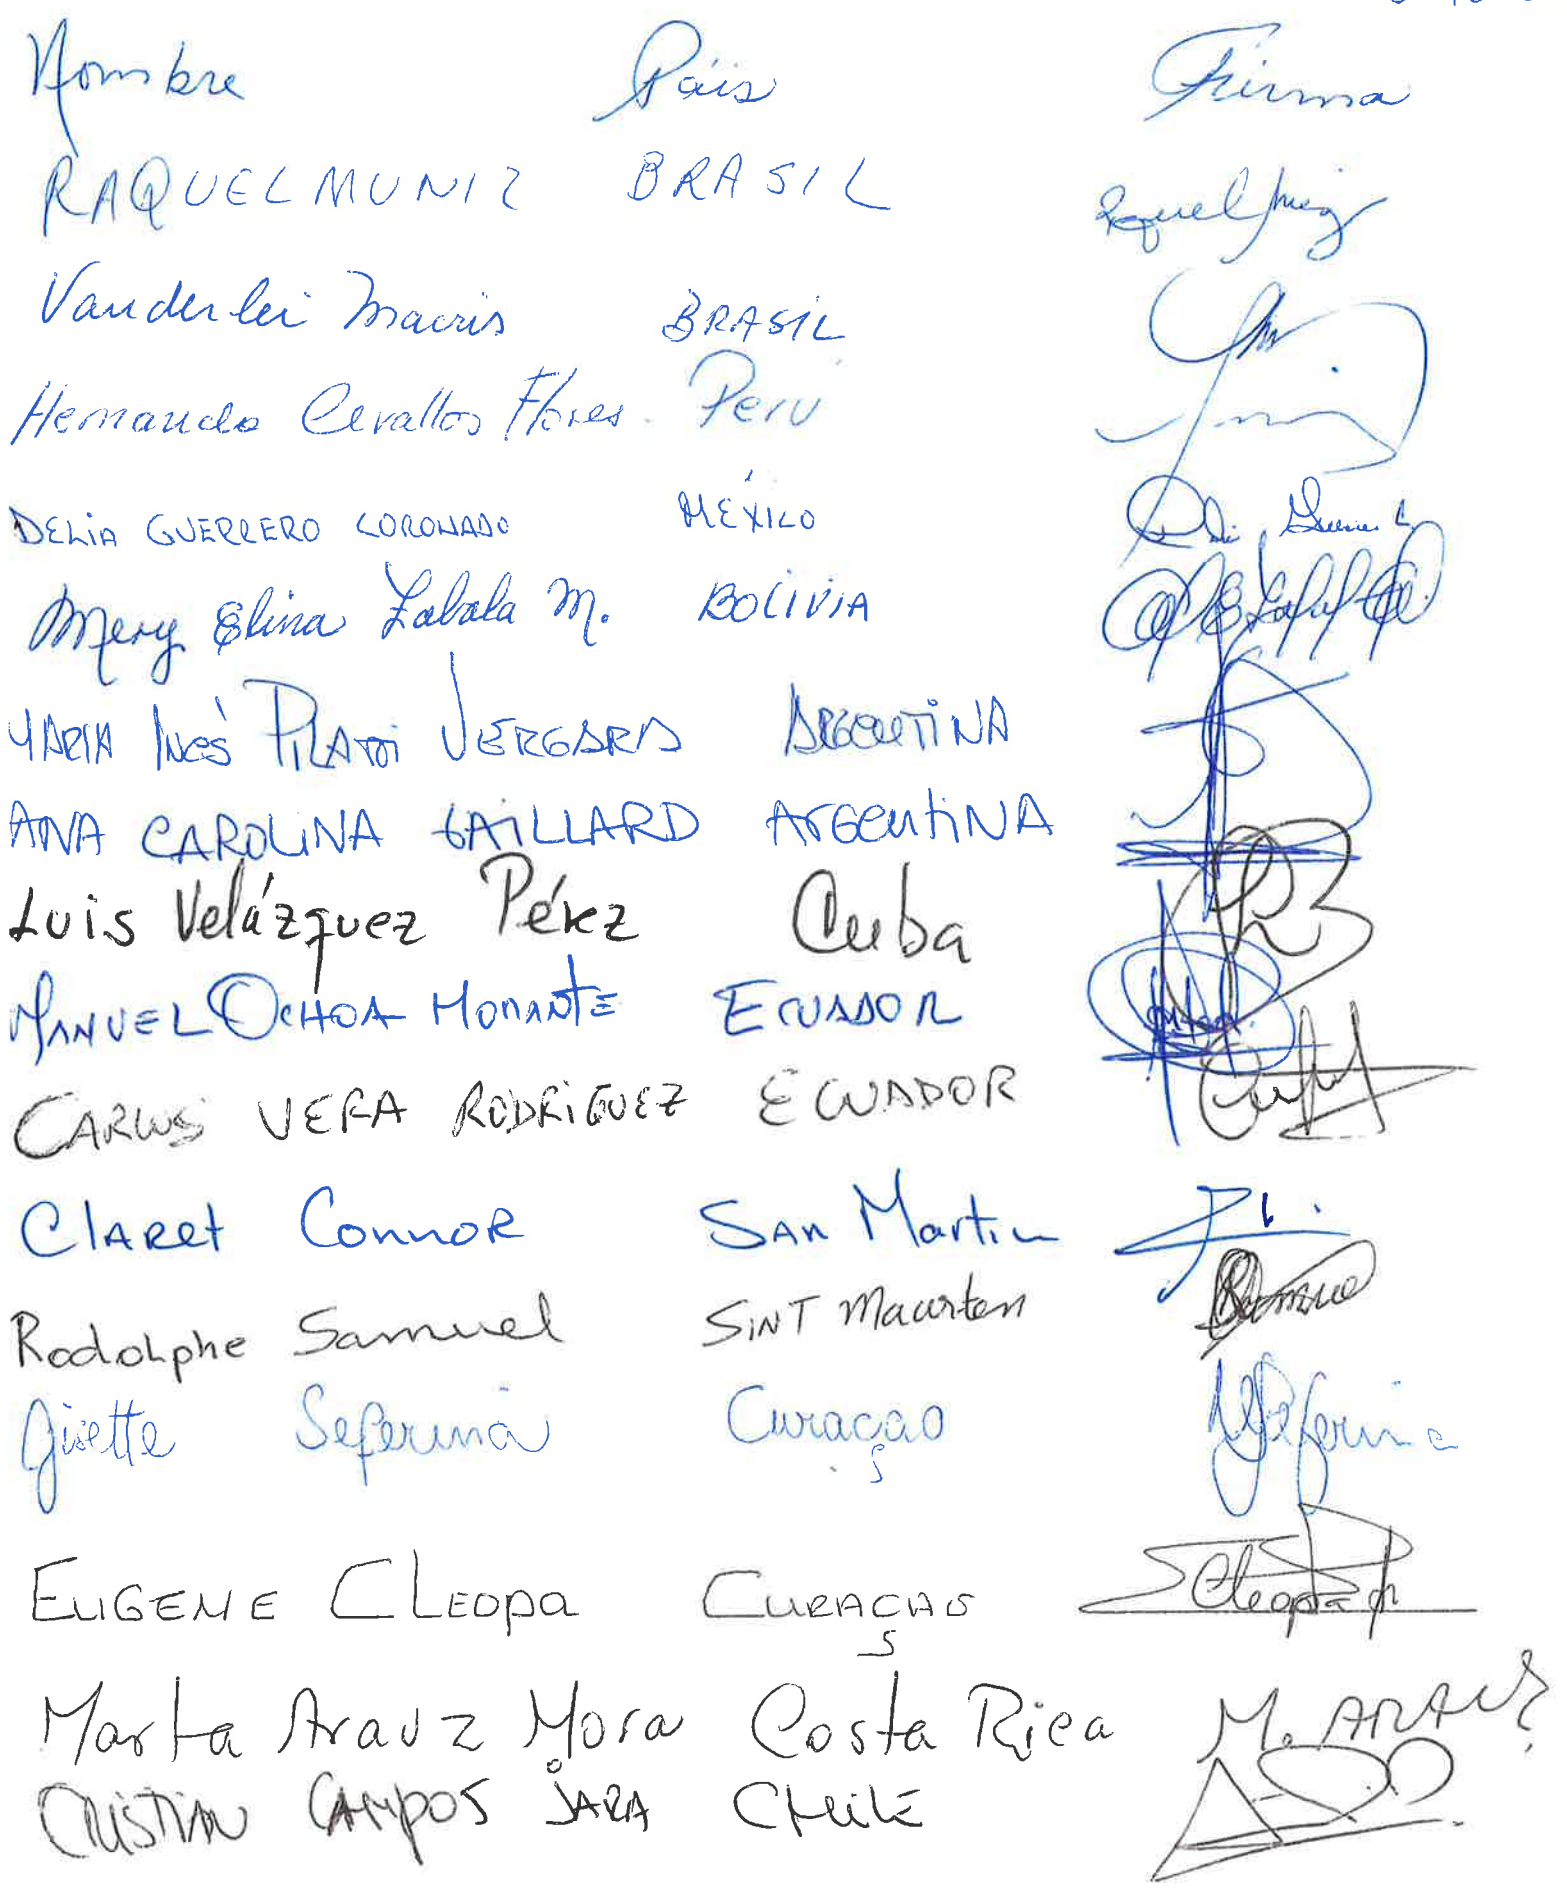 Nombre Páis Firma
RAQUEL MUNIZ BRASIL
Vanderlei Macris BRASIL
Hernando Cevallos Flores. Perú
DELIA GUERRERO CORONADO MÉXICO
Mery Elina Zabala M. BOLIVIA
MARIA INÉS PILATTI VERGARA ARGENTINA
ANA CAROLINA GAILLARD ARGENTINA
Luis Velázquez Pérez Cuba
MANUEL OCHOA MORANTE ECUADOR
CARLOS VERA RODRIGUEZ ECUADOR
CLARET CONNOR SAN Martin
Rodolphe Samuel SINT Maarten
Gisette Seferina Curaçao Seferina
EUGENE CLEOPA CURAÇAO Cleopa
Marta Arauz Mora Costa Rica M. ARAUZ
CRISTIAN CAMPOS JARA CHILE